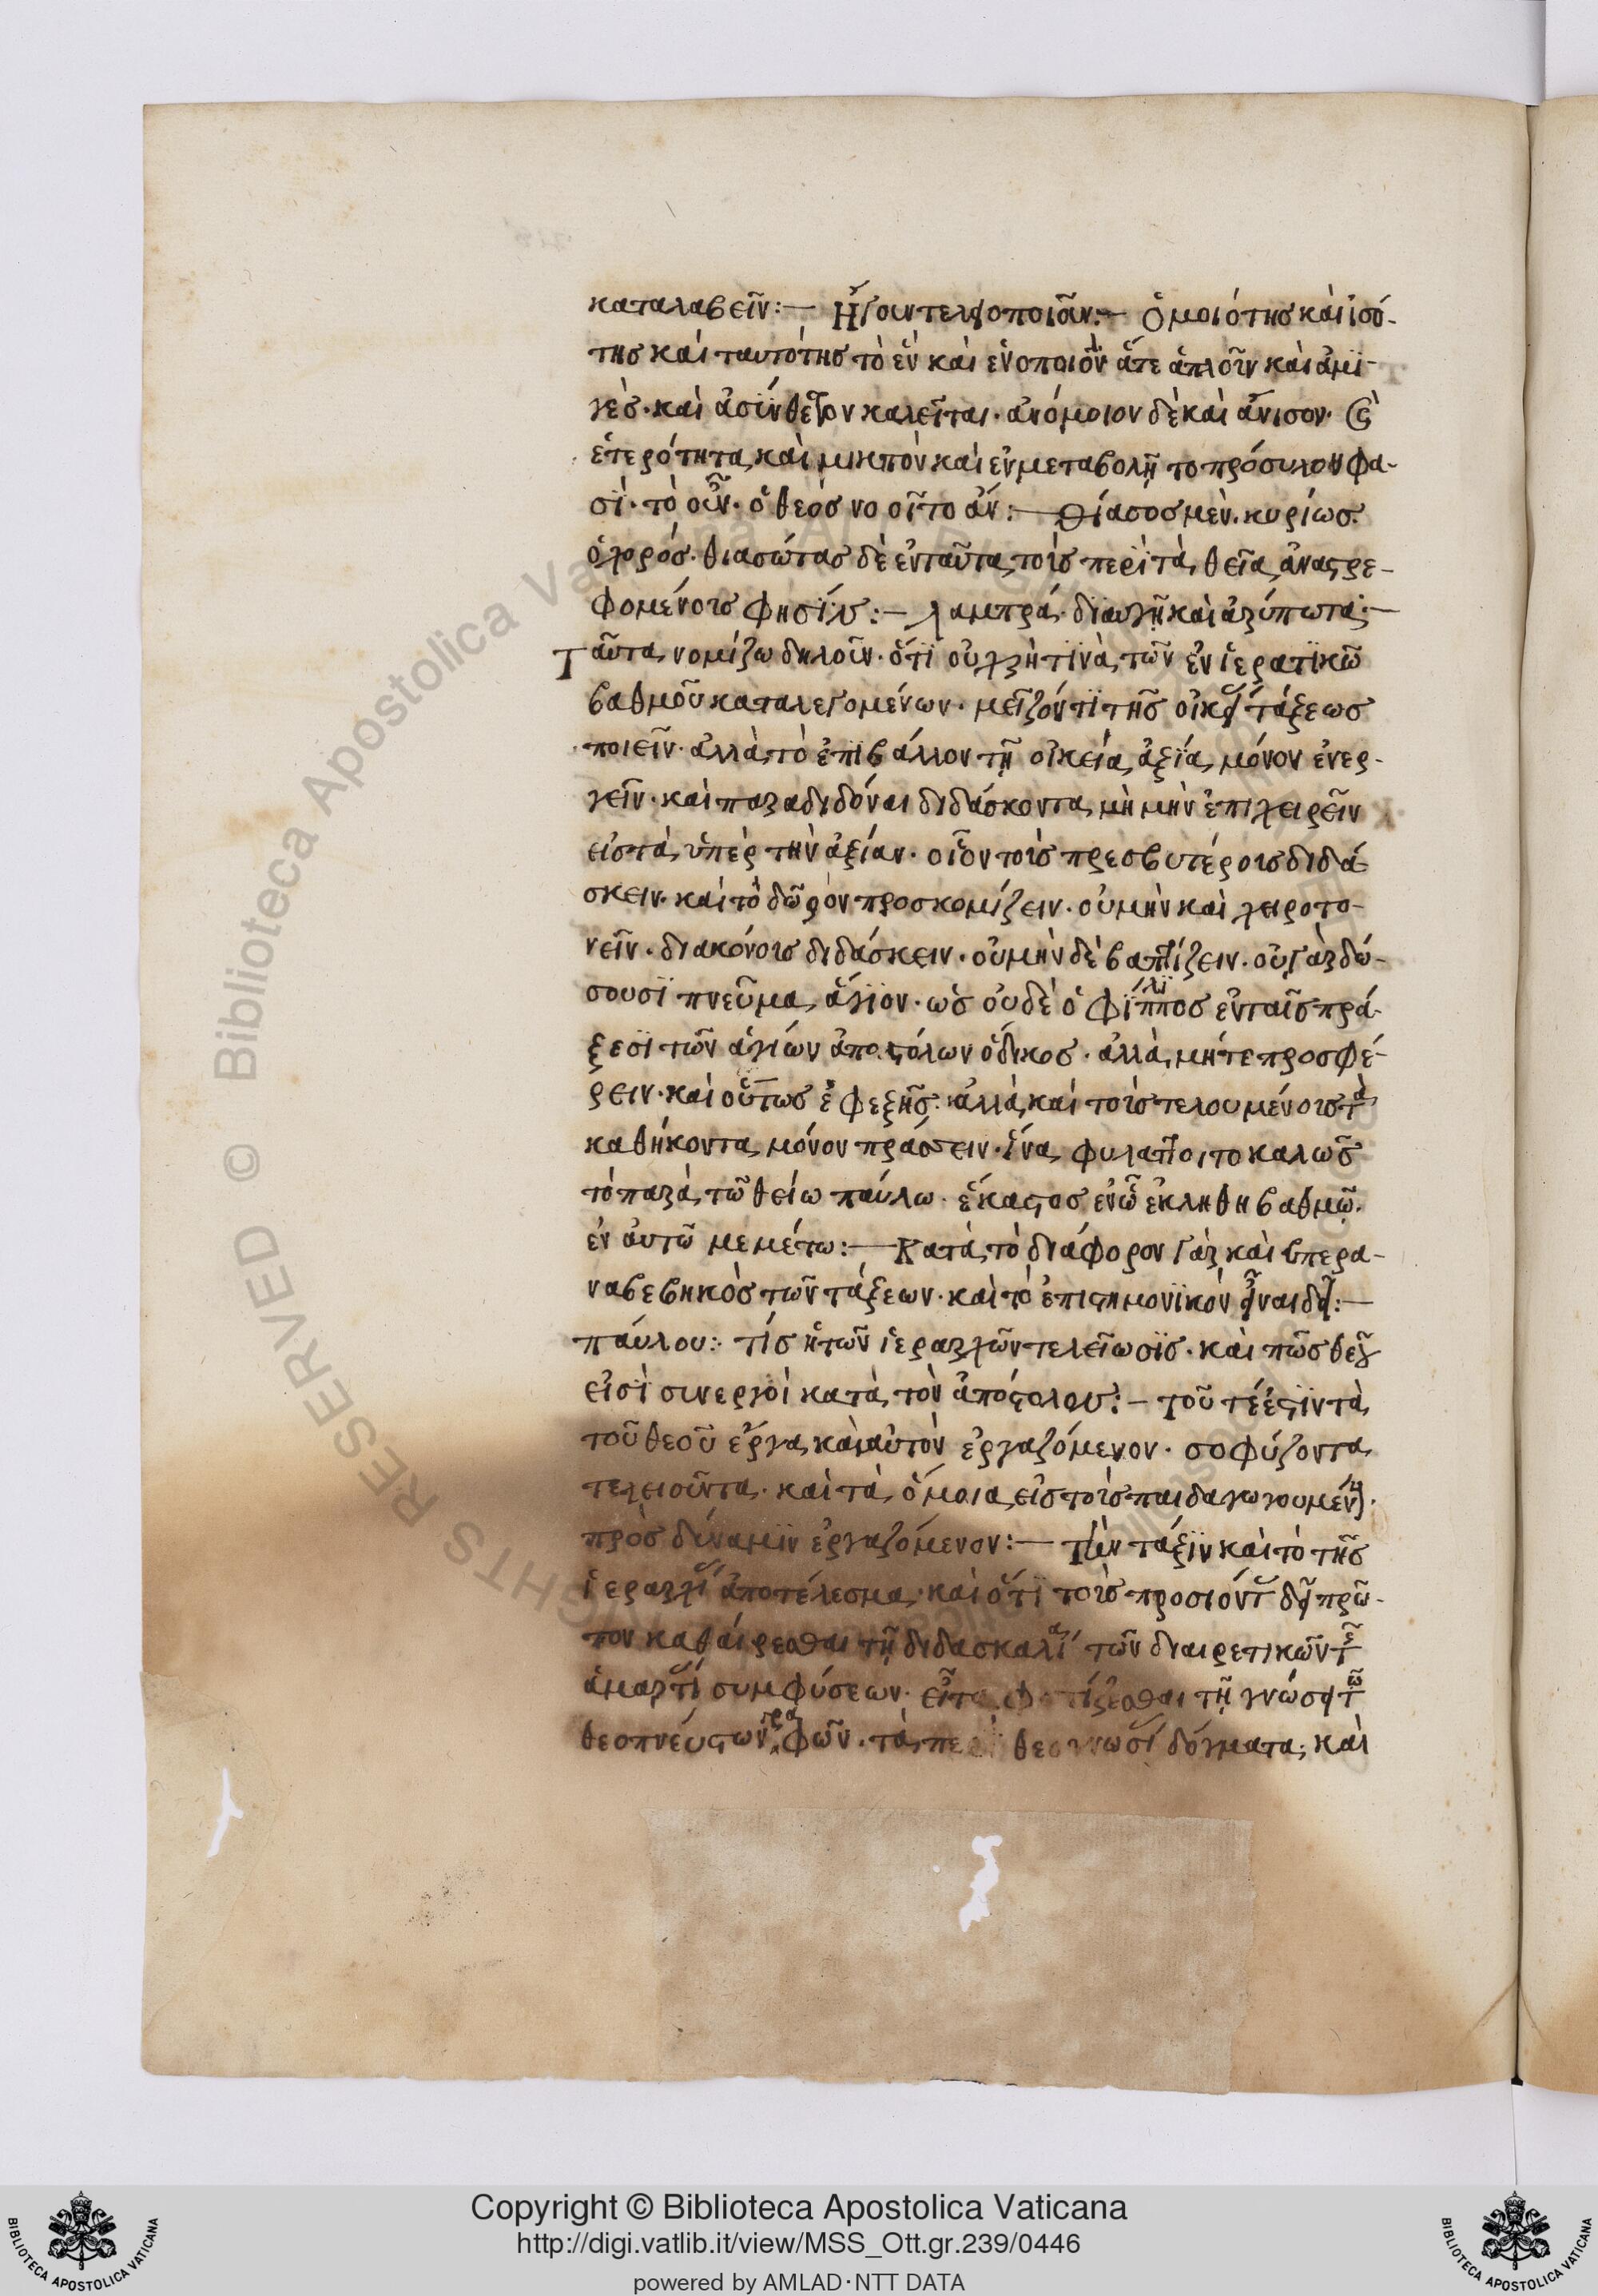 καταλαβεῖν:— Ἤγουν τελῃοποιῶν:— Ὁμοιότης καὶ ἰσό-
της καὶ ταυτότης τὸ ἓν καὶ ἑνοποιὸν ἅτε ἁπλοῦν καὶ ἀμϊ-
γές· καὶ ἀσύνθετον καλεῖται· ἀνόμοιον δὲ καὶ ἄνισον·
ἑτερότητα, καὶ μικτὸν καὶ ἐν μεταβολῆ το πρόσυλον φα-
σί· τὸ οὖν· ὁ θεὸς νοοῖτο ἄν:— Θίασος μὲν κυρίως
ὁ χορός· θιασώτας δὲ ἐνταῦτα, τοὶς περὶ τὰ θεῖα ἀναστρε-
φομένοις φησίν:— λαμπρά· διαυγῆ καὶ ἀρύπωτα:—
Ταῦτα νομίζω δηλοῦν· ὅτϊ οὐ χρή τινα τῶν ἐν ἱερατϊκῶ
βαθμοῦ καταλεγομένων· μεῖζόν τϊ τῆς οἰκείας τάξεως
ποιεῖν· ἀλλὰ τὸ ἐπϊβάλλον τῆ οἰκεία ἀξία μόνον ἐνερ-
γεῖν· καὶ παραδιδόναι διδάσκοντα, μὴ μὴν ἐπιχειρεῖν
εἰς τὰ ὑπὲρ τὴν ἀξίαν· οἷον τοὶς πρεσβυτέροις διδά-
σκειν· καὶ τὸ δῶρον προσκομίζειν· οὐ μὴν καὶ χειροτο-
νεῖν· διακόνοις διδάσκειν· οὐ μὴν δὲ βαπτίζειν· οὐ γὰρ δώ-
σουσϊ πνεῦμα ἅγϊον· ὡς οὐδὲ ὁ Φίλϊππος ἐν ταῖς πρά-
ξεσϊ τῶν ἁγίων ἀποστόλων ὁ δῖκος· ἀλλὰ, μήτε προσφέ-
ρειν· καὶ οὕτως ἐφεξῆς· ἀλλὰ καὶ τοὶς τελουμένοις τὰ
καθήκοντα μόνον πράσσειν· ἵνα φυλάττοιτο καλῶς
τὸ παρὰ τῶ θείω παύλω· ἕκαστος ἐν ὧ ἐκλήθη βαθμῶ·
ἐν αὐτῶ μεμέτω:— Κατὰ τὸ διάφορον γὰρ καὶ ὑπερα-
ναβεβηκὸς τῶν τάξεων· καὶ τὸ ἐπιστημονϊκὸν εἶναι δεῖ:—
παύλου:· τίς ἡ τῶν ἱεραρχῶν τελείωσϊς· καὶ πῶς θεοῦ
εἰσὶ συνεργοὶ κατὰ τὸν ἀπόστολον:— τοῦτέ ἐστϊν τὰ
τοῦ θεοῦ ἔργα καὶ αὐτὸν ἐργαζόμενον· σοφύζοντα
τελειοῦντα· καὶ τὰ ὅμοια εἰς τοὶς παιδαγωγουμένους·
πρὸς δύναμϊν ἐργαζόμενον:— τὴν τάξϊν καὶ τὸ τῆς
ἱεραρχίας ἀποτέλεσμα· καὶ ὅτϊ τοὶς προσιόντας δεῖ πρῶ-
τον καθαίρεσθαι τῆ διδασκαλία τῶν διαιρετικῶν τῆς
ἁμαρτίας συμφύσεων· εἶτα φωτίζεσθαι τῆ γνώσει τῶν
θεοπνεύστων γραφῶν· τὰ περὶ θεογνωσίας δόγματα, καὶ
Copyright © Biblioteca Apostolica Vaticana
http://digi.vatlib.it/view/MSS_Ott.gr.239/0446
powered by AMLAD·NTT DATA